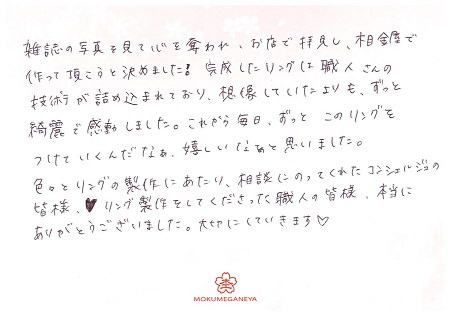 雑誌の写真を見て心を奪われ、お店で拝見し、杢目金屋で
作って頂こうと決めました! 完成したリングは職人さんの
技術が詰め込まれており、想像していたよりも、ずっと
綺麗で感動しました。これから毎日、ずっと このリングを
つけていくんだなぁ、嬉しいなぁと思いました。
色々とリングの製作にあたり、相談にのってくれたコンシェルジュの
皆様、♥リング製作をしてくださった職人の皆様、本当に
ありがとうございました。大切にしていきます♡
MOKUMEGANEYA